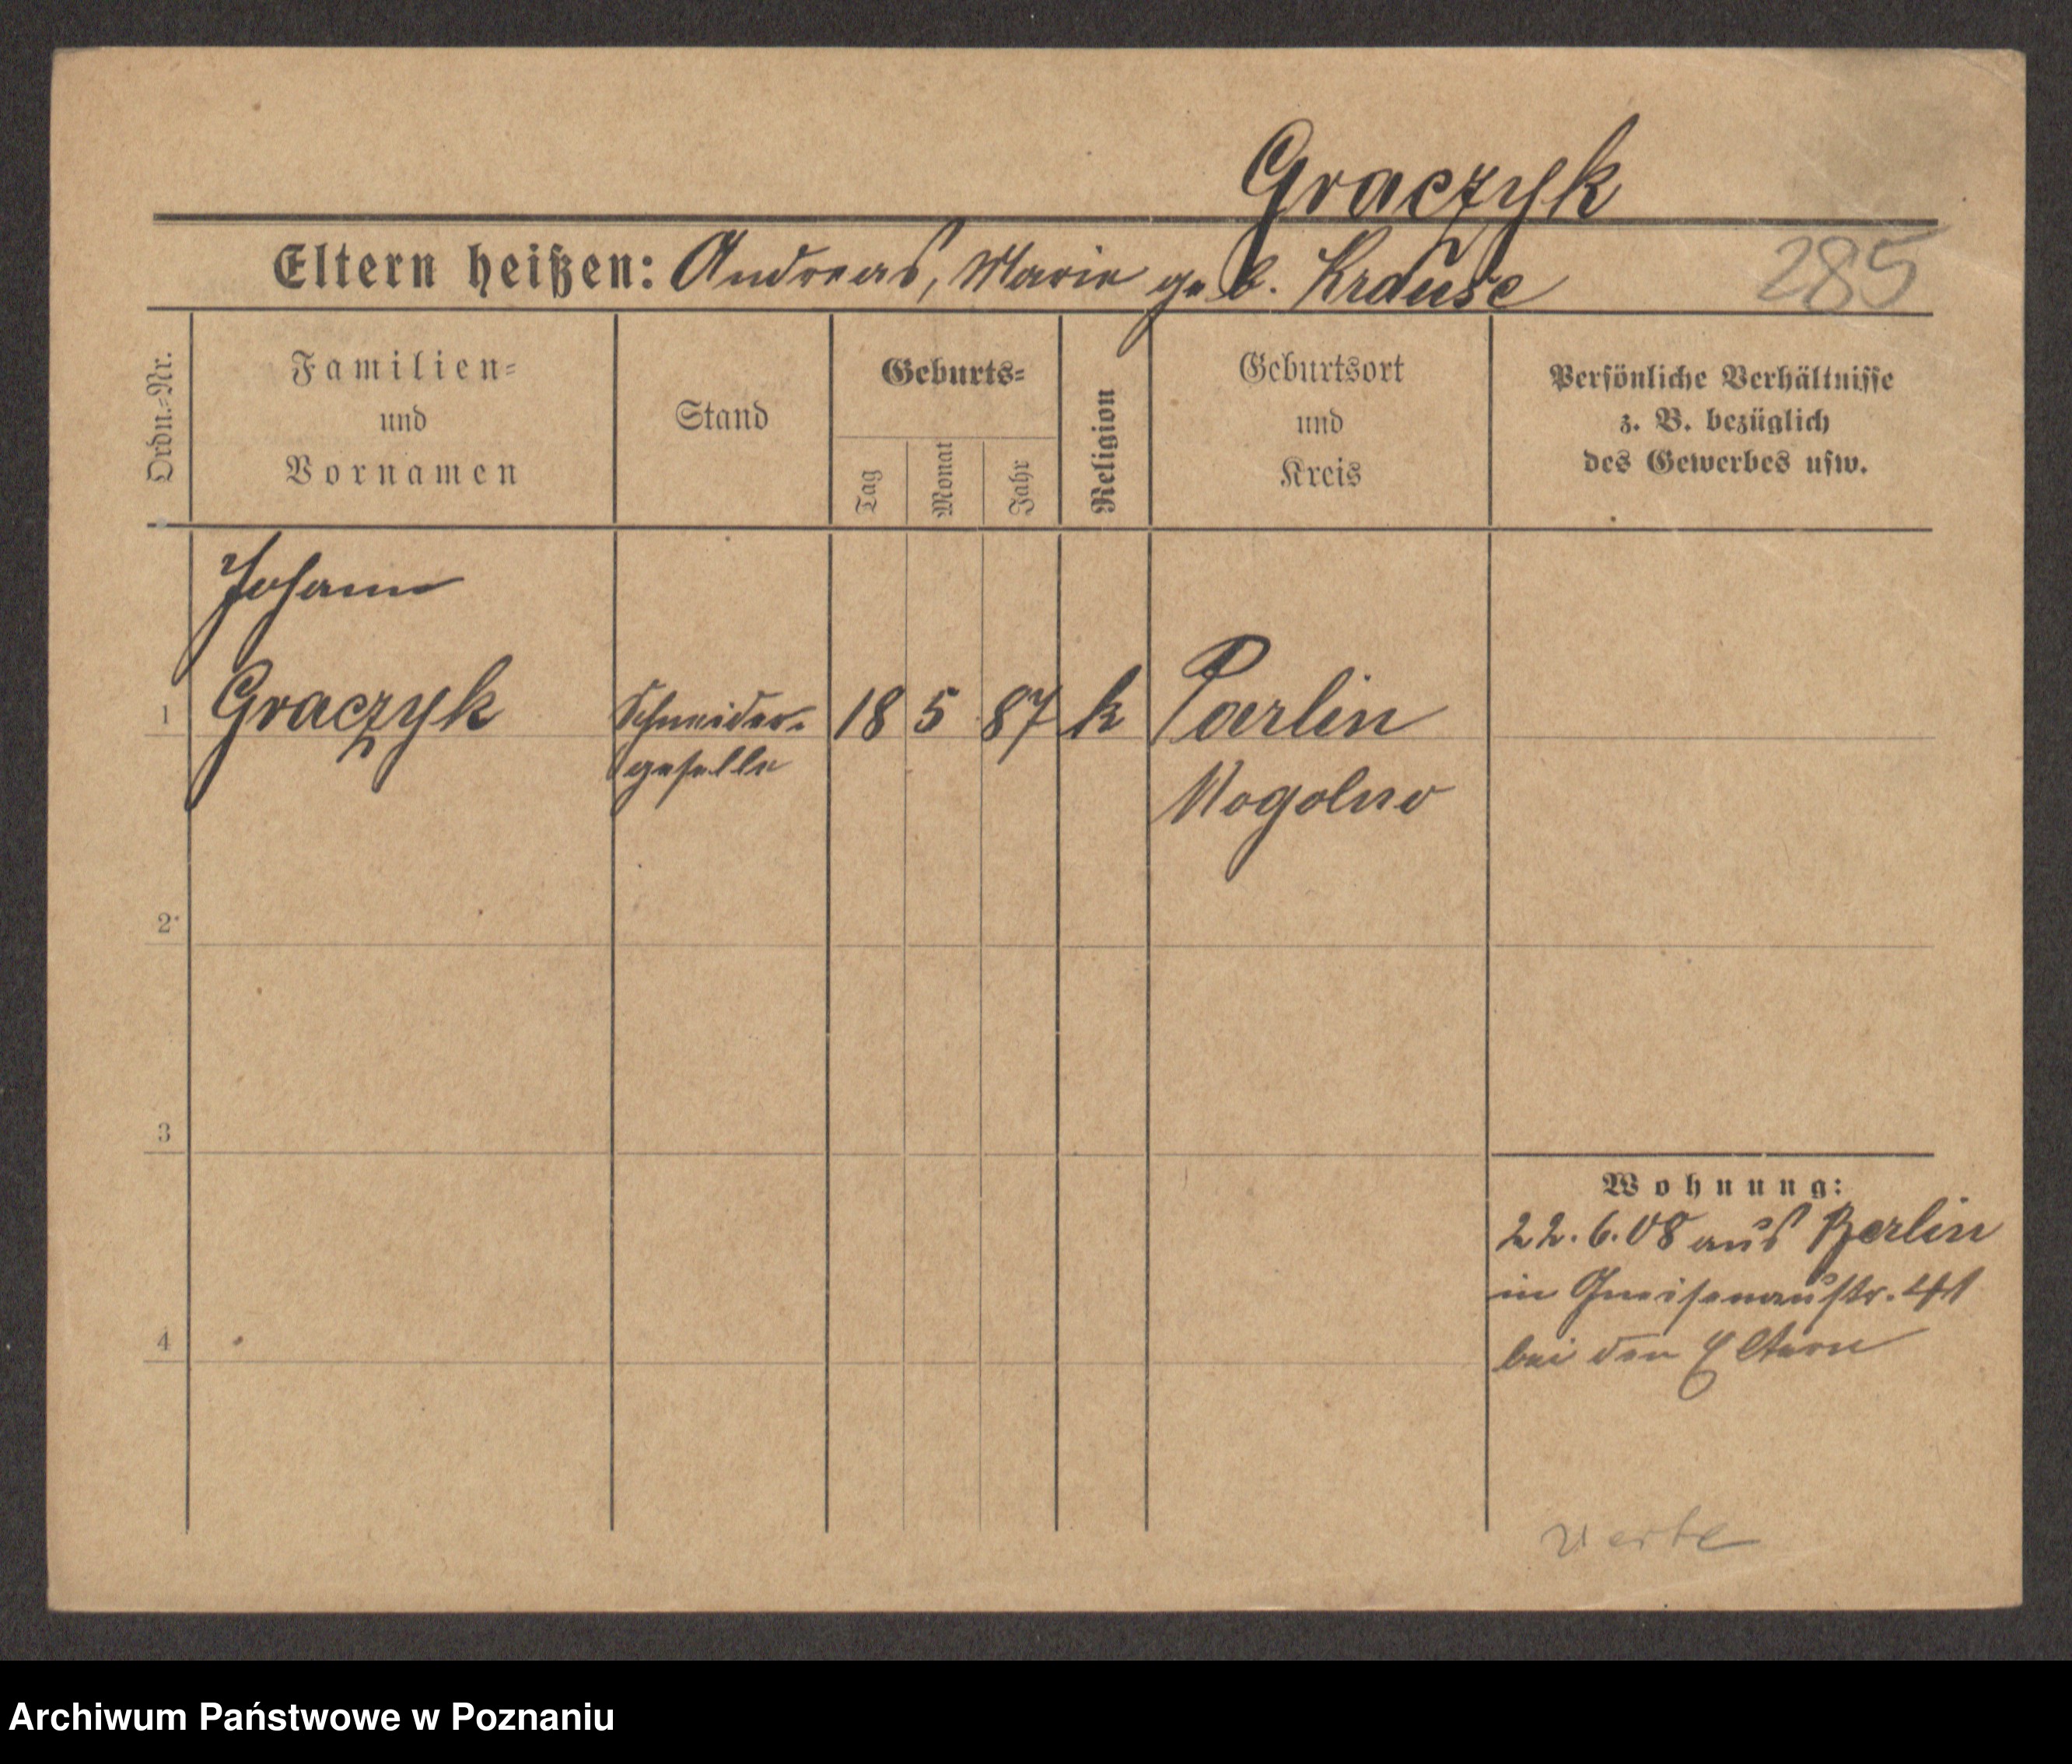 Graczyk
Eltern heißen: Andreas, Marie geb. Krause
285
Ordn.=Nr.
Familien=
und
Vornamen
Stand
Geburts=
Tag
Monat
Jahr
Religion
Geburtsort
und
Kreis
Persönliche Verhältnisse
z. B. bezüglich
des Gewerbes usw.
Johann
1 Graczyk Schneider- 18 5 87 k Parlin
geselle
Mogolno
2
3
4
Wohnung:
22.6.08 aus Berlin
in Gneisenaustr. 41
bei den Eltern
verte
Archiwum Państwowe w Poznaniu